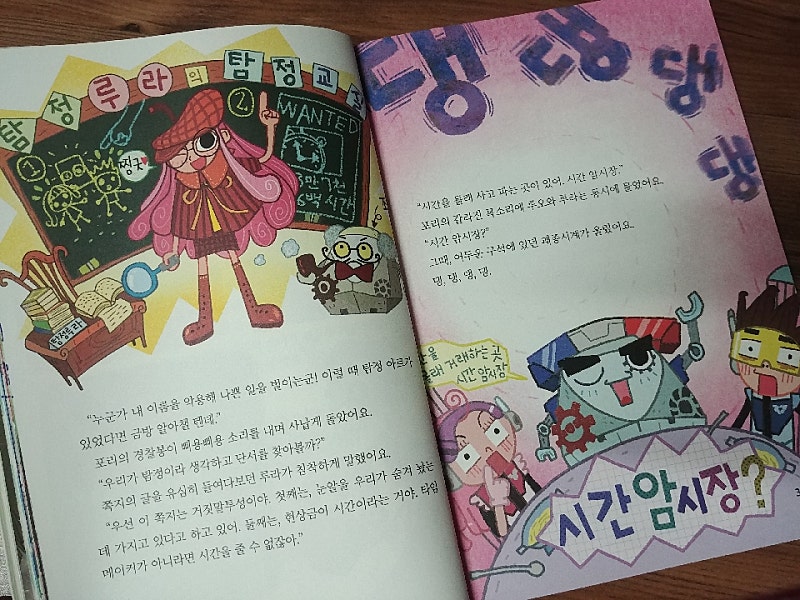 탐정루라의 탐정교실
①
찡긋
②
WANTED
5만7천
6백 시간
탐정루라
"누군가 내 이름을 악용해 나쁜 일을 벌이는군! 이럴 때 탐정 아르가
있었다면 금방 알아챌 텐데."
포리의 경찰봉이 삐용삐용 소리를 내며 사납게 돌았어요.
"우리가 탐정이라 생각하고 단서를 찾아볼까?"
쪽지의 글을 유심히 들여다보던 루라가 침착하게 말했어요.
"우선 이 쪽지는 거짓말투성이야. 첫째는, 눈알을 우리가 숨겨 놨는
데 가지고 있다고 하고 있어. 둘째는, 현상금이 시간이라는 거야. 타임
메이키가 아니라면 시간을 줄 수 없잖아."
댕 댕 댕 댕
"시간을 몰래 사고 파는 곳이 있어. 시간 암시장."
포리의 갈라진 목소리에 루오와 루라는 동시에 물었어요.
"시간 암시장?"
그때, 어두운 구석에 있던 괘종시계가 울렸어요.
댕, 댕, 댕, 댕.
거래하는 곳
시간 암시장
시간 암시장?